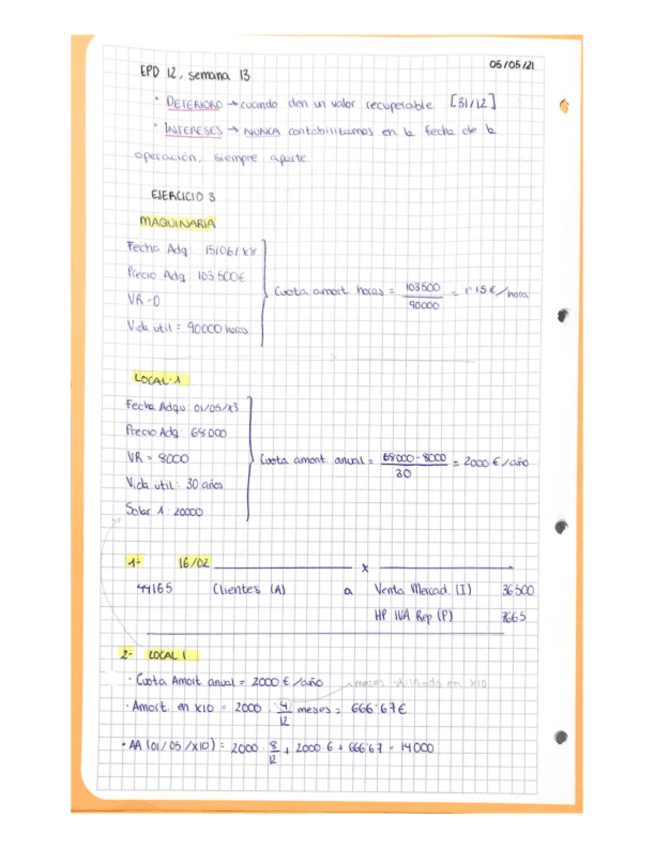 05/05/21
EPD 12, semana 13
• DETERIORO → cuando den un valor recuperable [31/12]
• INTERESES → NUNCA contabilizamos en la fecha de la
operación, siempre aparte
EJERCICIO 3
MAQUINARIA
Fecha Adq: 15/06/X8
Precio Adq: 103 500€
VR = 0
Vida util = 90000 horas
Cuota amort horas = 103500 / 90000 = 1'15 €/hora
LOCAL 1
Fecha Adqu: 01/05/X3
Precio Adq 68000
VR = 8000
Vida útil: 30 años
Solar 1: 20000
Cuota amort. anual = 68000 - 8000 / 30 = 2000 €/año
1- 16/02 x
44165 Clientes (A) a Venta Mercad. (I) 36500
HP IVA Rep (P) 7665
2- LOCAL 1
• Cuota Amort anual = 2000 €/año meses utilizado en X10
• Amort. en X10 = 2000 · 4/12 meses = 666'67€
• AA (01/05/X10) = 2000 · 8/12 + 2000·6 + 666'67 = 14000